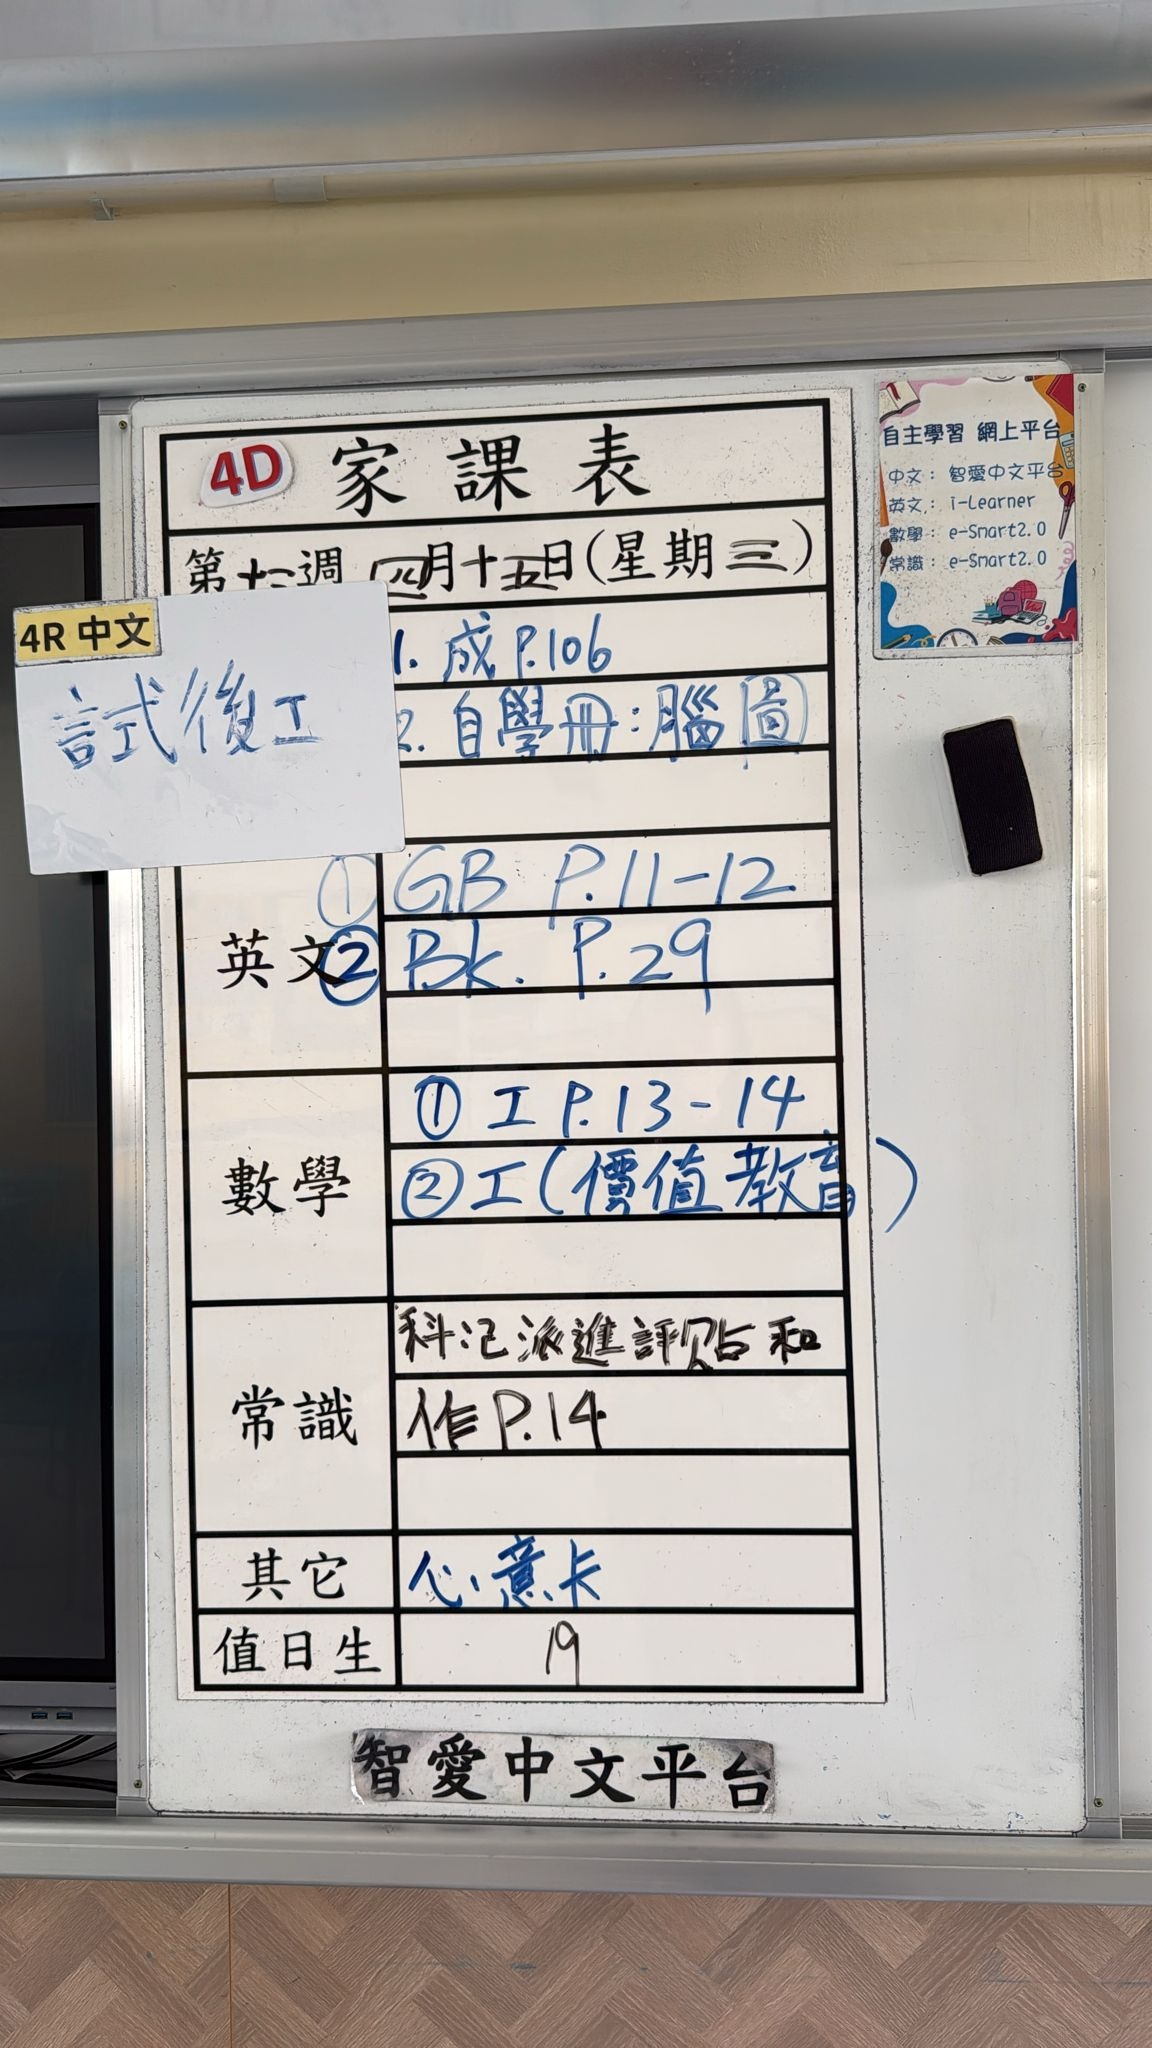 4D 家課表
第十二週 四月十五日(星期三)
4R 中文
試後工
1. 成 P.106
2. 自學冊:腦圖
英文
① GB P.11-12
② Bk. P.29
數學
① 工 P.13-14
② 工(價值教育)
常識
科汜派進評貼和
作 P.14
其它
心意卡
值日生
19
智愛中文平台
自主學習 網上平台
中文: 智愛中文平台
英文: i-Learner
數學: e-Smart2.0
常識: e-Smart2.0